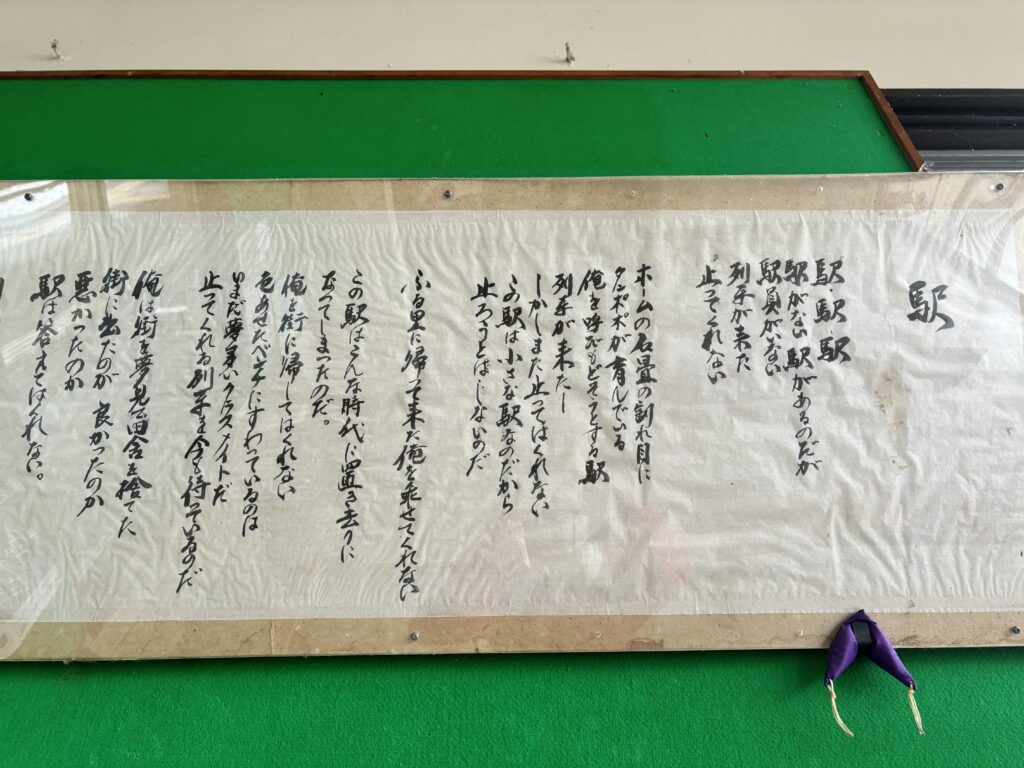 駅
駅 駅 駅
駅がない 駅があるのだが
駅員がいない
列車が来た
止ってくれない
ホームの石畳の割れ目に
タンポポが育んでいる
俺を呼びもどそうとする駅
列車が来たー
しかしまた止ってはくれない
この駅は小さな駅なのだから
止ろうとはしないのだ
ふる里に帰って来た俺を乗せてくれない
この駅はこんな時代に置き去りに
なってしまったのだ。
俺を街に帰してはくれない
色あせたベンチにすわっているのは
いまだ夢多いクラスメイトだ
止ってくれる列車を今も待っているのだ
俺は街を夢見て田舎を捨てた
街に出たのが 良かったのか
悪かったのか
駅は答えてはくれない。